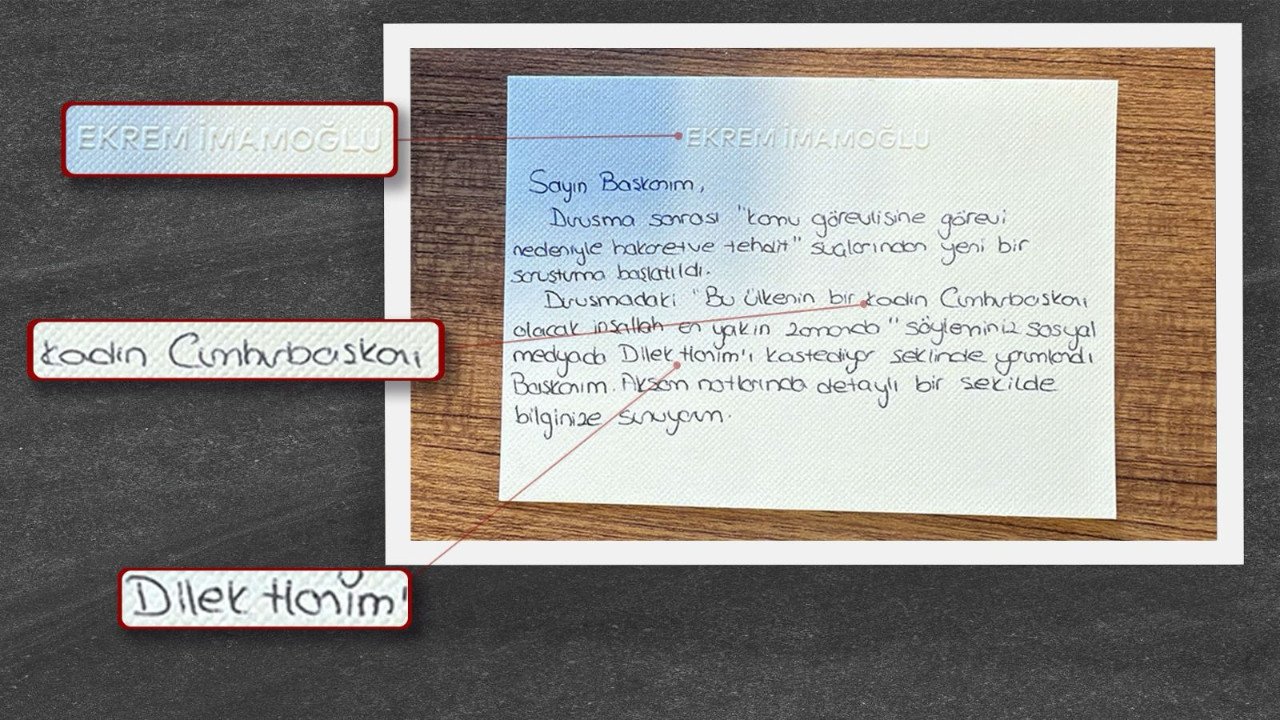 EKREM İMAMOĞLU
EKREM İMAMOĞLU
Sayın Baskanım,
Durusma sonrası "kamu görevlisine görevi
nedeniyle hakaret ve tehdit" suçlarından yeni bir
soruşturma başlatıldı.
Durusmadaki "Bu Ülkenin bir kadın Cumhurbaskanı
olacak inşallah en yakın zamanda" söyleminiz sosyal
medyada Dilek Hanım'ı kastediyor seklinde yorumlandı
Baskanım. Aksam notlarında detaylı bir sekilde
bilginize sunuyorum.
kadın Cumhurbaskanı
Dilek Hanım'